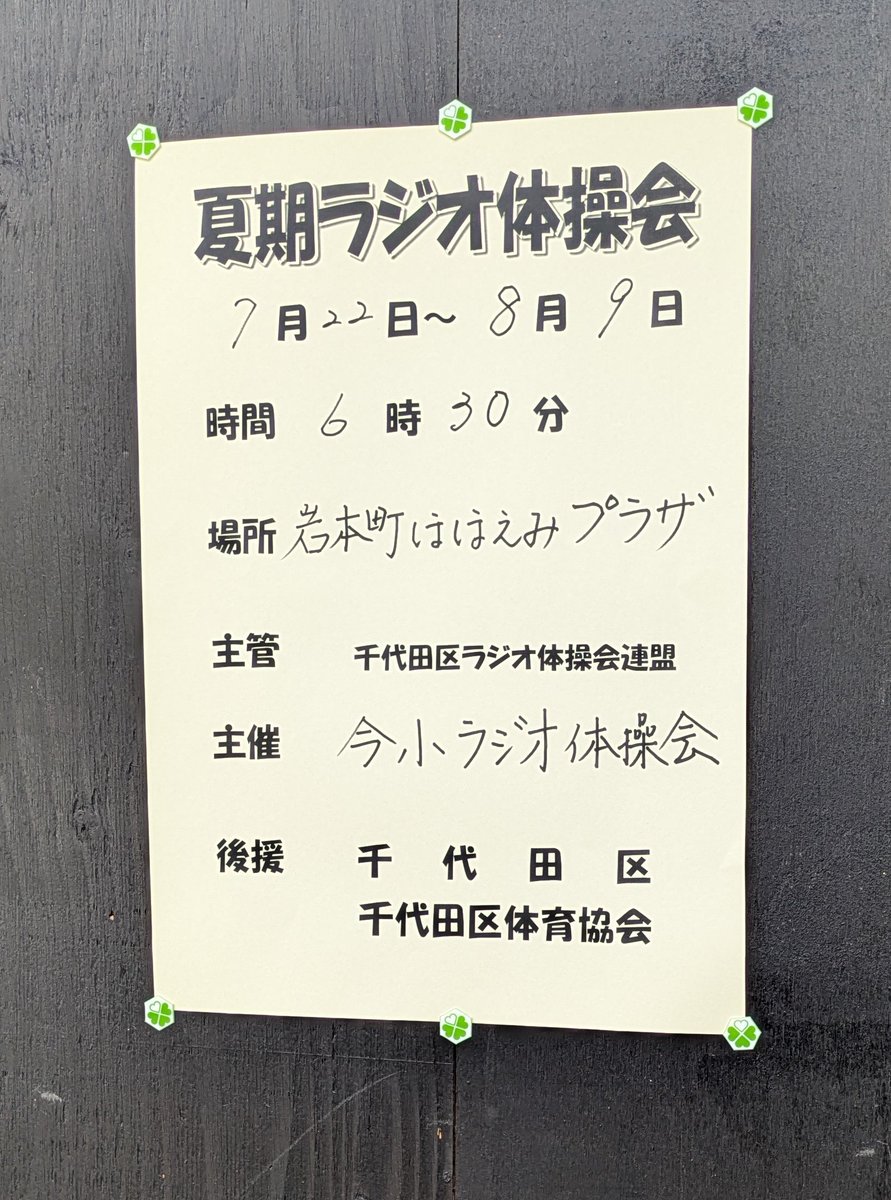 夏期ラジオ体操会
7月22日～8月9日
時間 6時30分
場所 岩本町ほほえみプラザ
主管 千代田区ラジオ体操会連盟
主催 今小ラジオ体操会
後援 千代田区
千代田区体育協会